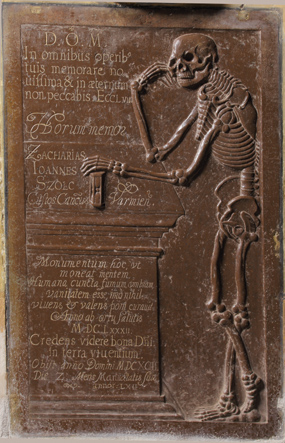 D. O. M.
In omnibus operib⁹
tuis memorare no
uissima & in æternum
non peccabis. ECCL.VII
Horum memor
ZACHARIAS
IOANNES
SZOLC
Custos Canonic⁹ Varmien.
Monumentum hoc, ut
moneat mentem
Humana cuncta fumum umbram
vanitatem esse, imo nihil
viuens & valens poni curauit
ab ortu salutis
M DC LXXXII
Credens videre bona Dñi.
In terra viuentium.
Obijt anno Domini MDCXCII